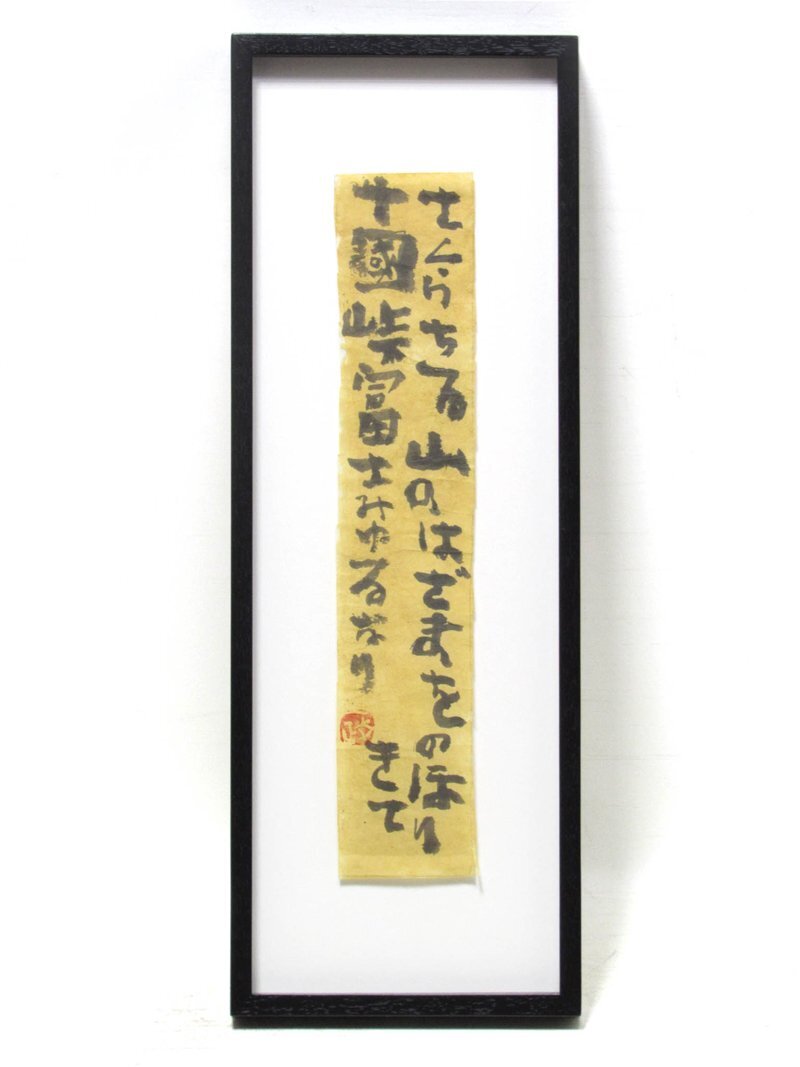 さくらちる山のはざまをのぼり
きて
十國峠富士みゆるなり